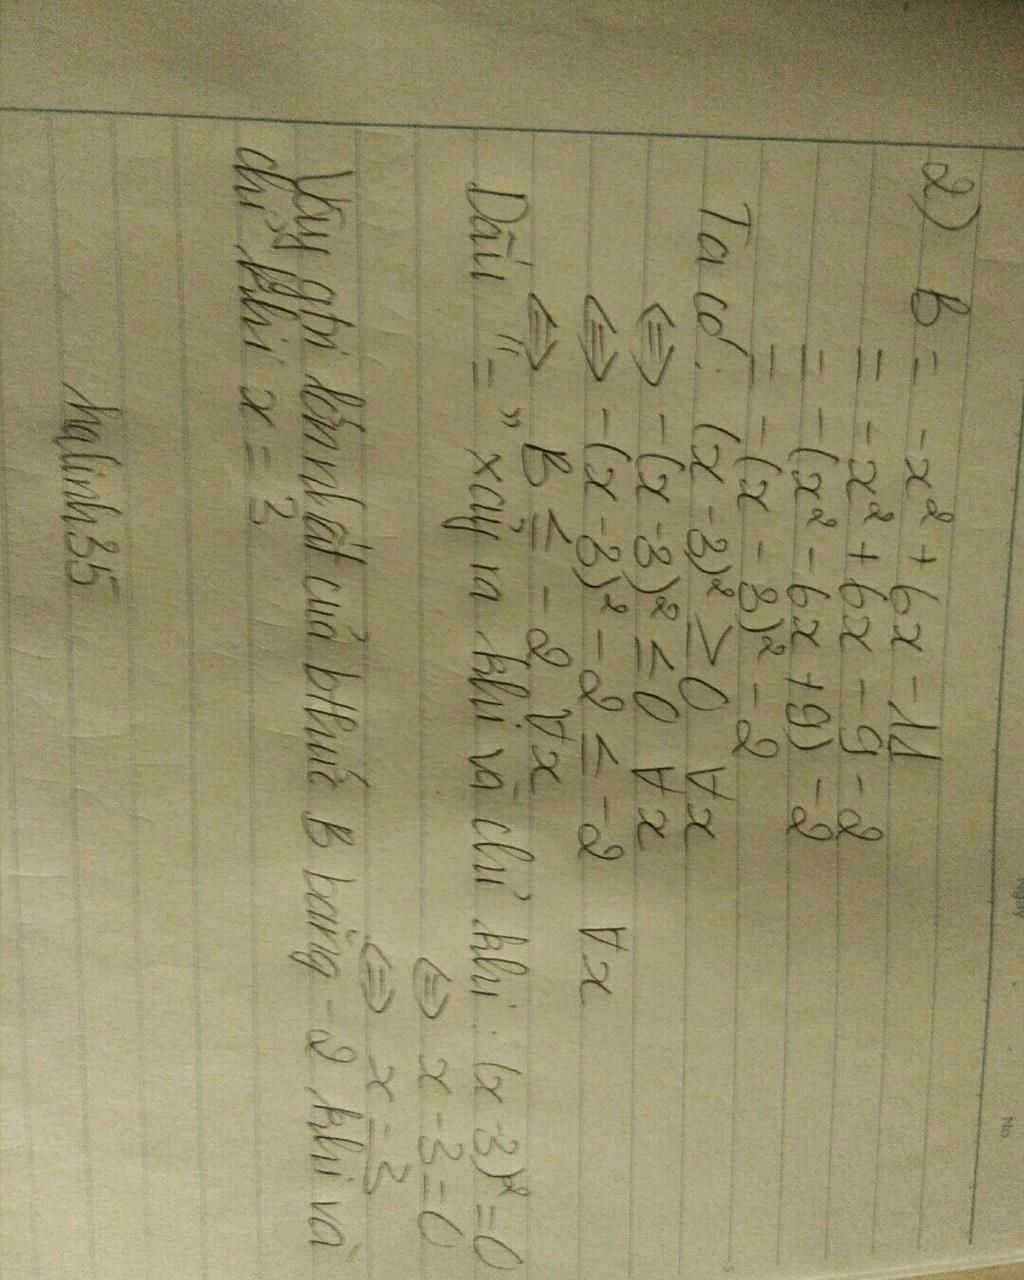 2) B = -x² + 6x - 11
= -x² + 6x - 9 - 2
= -(x² - 6x + 9) - 2
= -(x - 3)² - 2
Ta có: (x - 3)² ≥ 0 ∀x
⇔ -(x - 3)² ≤ 0 ∀x
⇔ -(x - 3)² - 2 ≤ -2 ∀x
⇔ B ≤ -2 ∀x
Dấu "=" xảy ra khi và chỉ khi: (x - 3)² = 0
⇔ x - 3 = 0
⇔ x = 3
Vậy giá trị lớn nhất của bthức B bằng -2 khi và
chỉ khi x = 3
halinh35
Ngày
No.